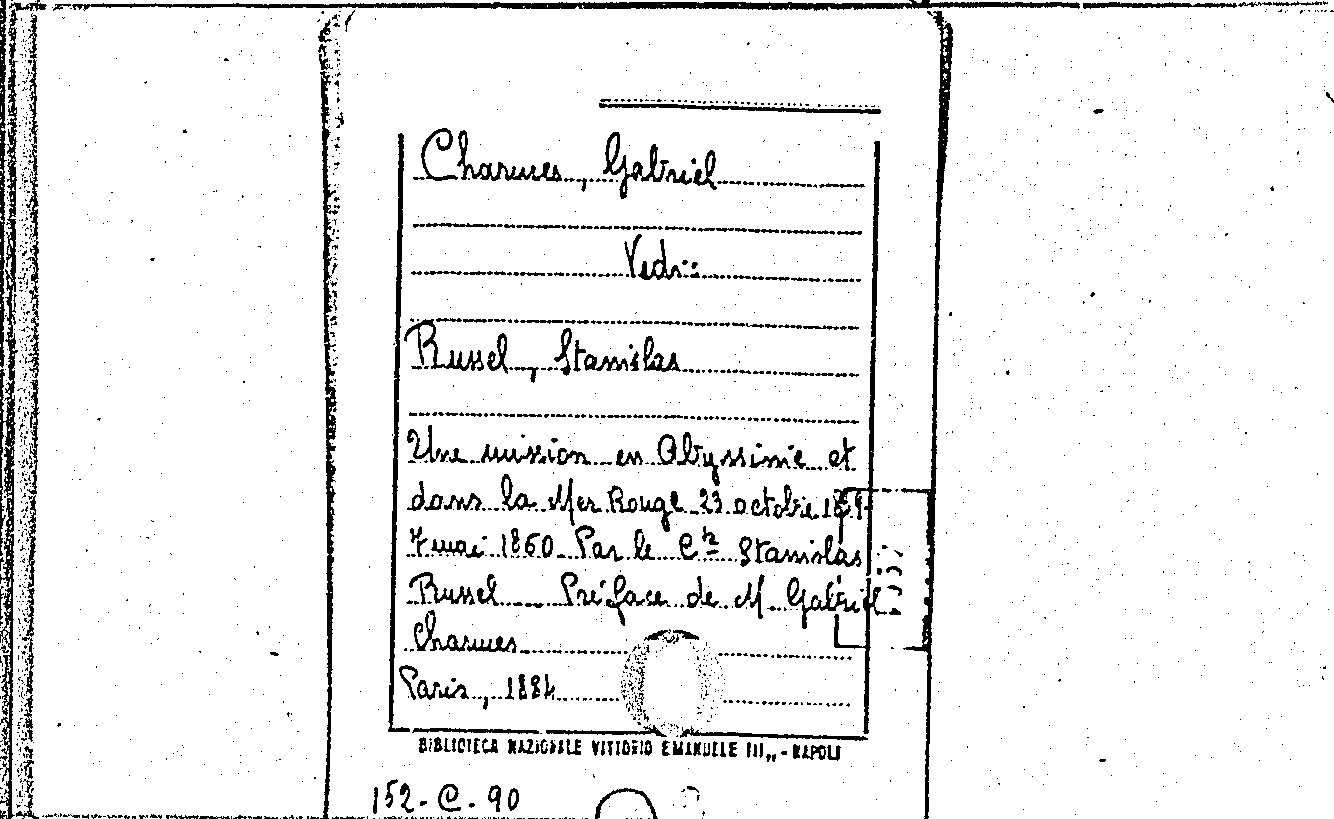 Charmes, Gabriel
Vedi:
Russel, Stanislas
Une mission en Abyssinie et
dans la Mer Rouge 23 octobre 1859-
7 mai 1860. Par le Cte Stanislas
Russel — Préface de M. Gabriel
Charmes
Paris, 1884
BIBLIOTECA NAZIONALE VITTORIO EMANUELE III„ - NAPOLI
152-C-90